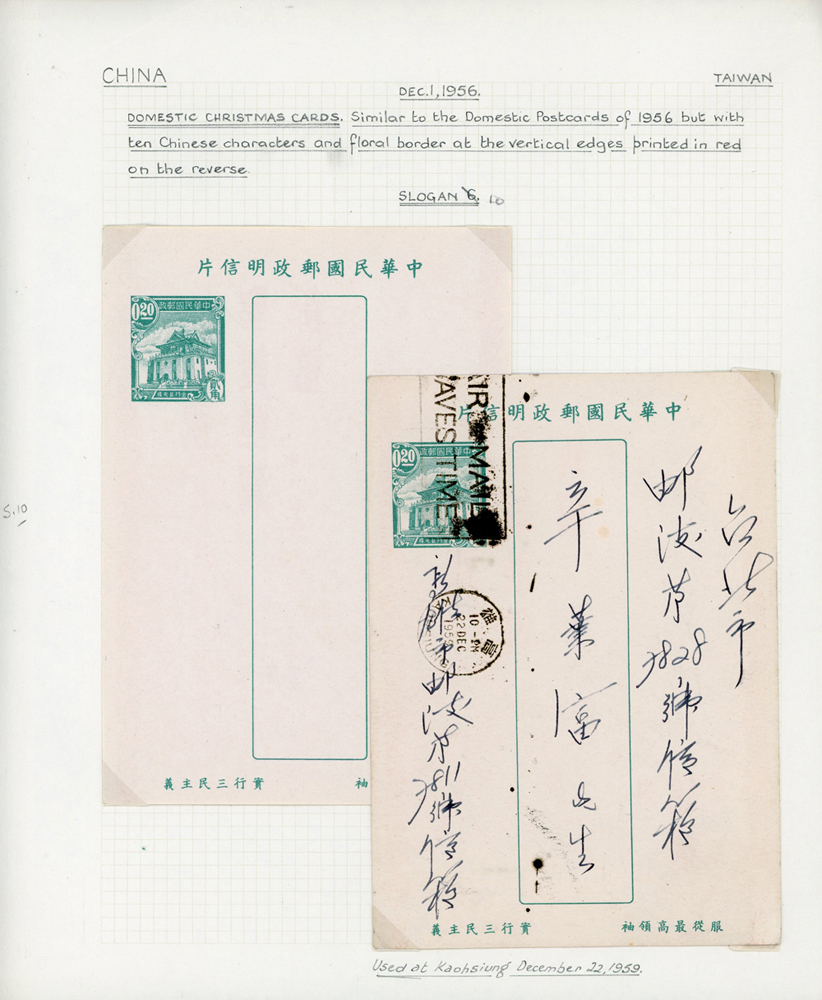 CHINA
TAIWAN
DEC.1,1956.
DOMESTIC CHRISTMAS CARDS. Similar to the Domestic Postcards of 1956 but with
ten Chinese characters and floral border at the vertical edges printed in red
on the reverse.
SLOGAN 6. 10
片信明政郵國民華中
0.20
政郵國民華中
貳角
義主民三行實
袖
S.10
片信明政郵國民華中
AIR MAIL
SAVES TIME
0.20
政郵國民華中
台北市
邮政第7828號信箱
辛葉富先生
10-PM
22DEC
1959
邮政第7811號信箱
義主民三行實
袖領高最從服
Used at Kaohsiung December 22, 1959.